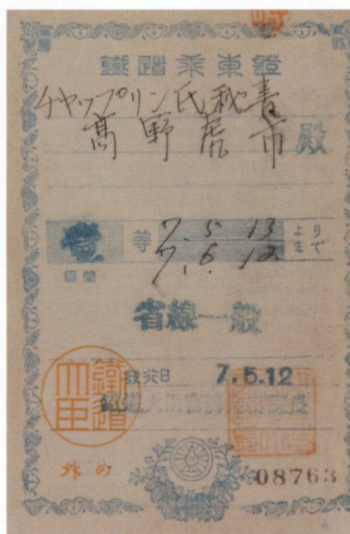 鐵道乘車證
チャップリン氏秘書
高野虎市殿
壹等 7.5.13より
7.6.12まで
區間
省線一般
發行日 7.5.12
鐵道大臣
08763